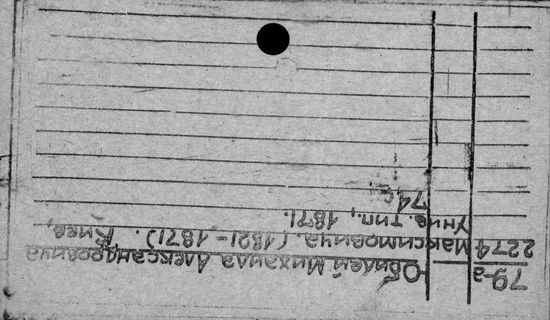 79-а
2274
Юбилей Михаила Александровича
Максимовича (1821-1871). Киев,
Унив. тип., 1871.
74 с